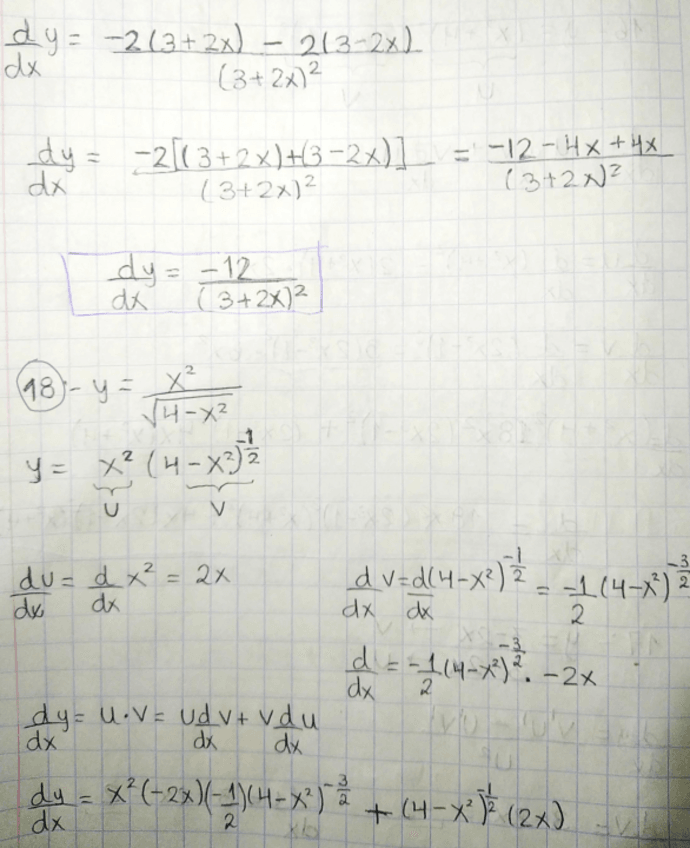 d/dx y = (-2(3+2x) - 2(3-2x))/(3+2x)²
dy/dx = (-2[(3+2x)+(3-2x)])/(3+2x)² = (-12-4x+4x)/(3+2x)²
dy/dx = -12/(3+2x)²
18.- y = x²/√(4-x²)
y = x² (4-x²)^(-1/2)
U V
du/dx = d/dx x² = 2x
d/dx v = d/dx (4-x²)^(-1/2) = -1/2 (4-x²)^(-3/2)
d/dx = -1/2 (4-x²)^(-3/2) · -2x
dy/dx = u·v = u dv/dx + v du/dx
dy/dx = x²(-2x)(-1/2)(4-x²)^(-3/2) + (4-x²)^(-1/2) (2x)